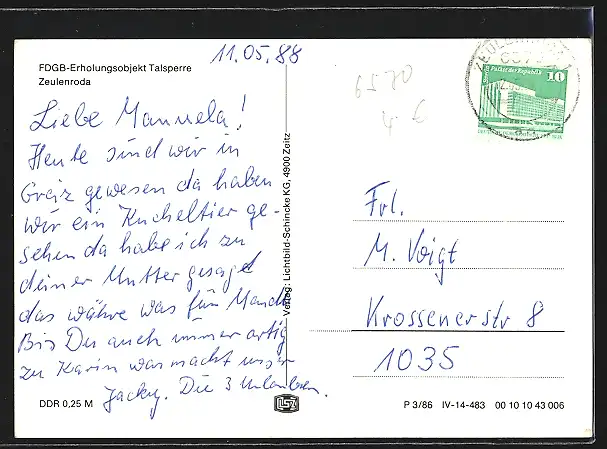 11.05.88
FDGB-Erholungsobjekt Talsperre
Zeulenroda
Liebe Manuela!
Heute sind wir in
Greiz gewesen da haben
wir ein Kucheltier ge-
sehen da habe ich zu
deiner Mutter gesagt
das währe was für Manuela
Bis Du auch immer artig
zu Karin was macht unser
Jacky. Die 3 Urlauber.
DDR 0,25 M
Verlag: Lichtbild-Schincke KG, 4900 Zeitz
6570
Palast der Republik
10
Frl.
M. Voigt
Krossenerstr 8
1035
P 3/86 IV-14-483 00 10 10 43 006